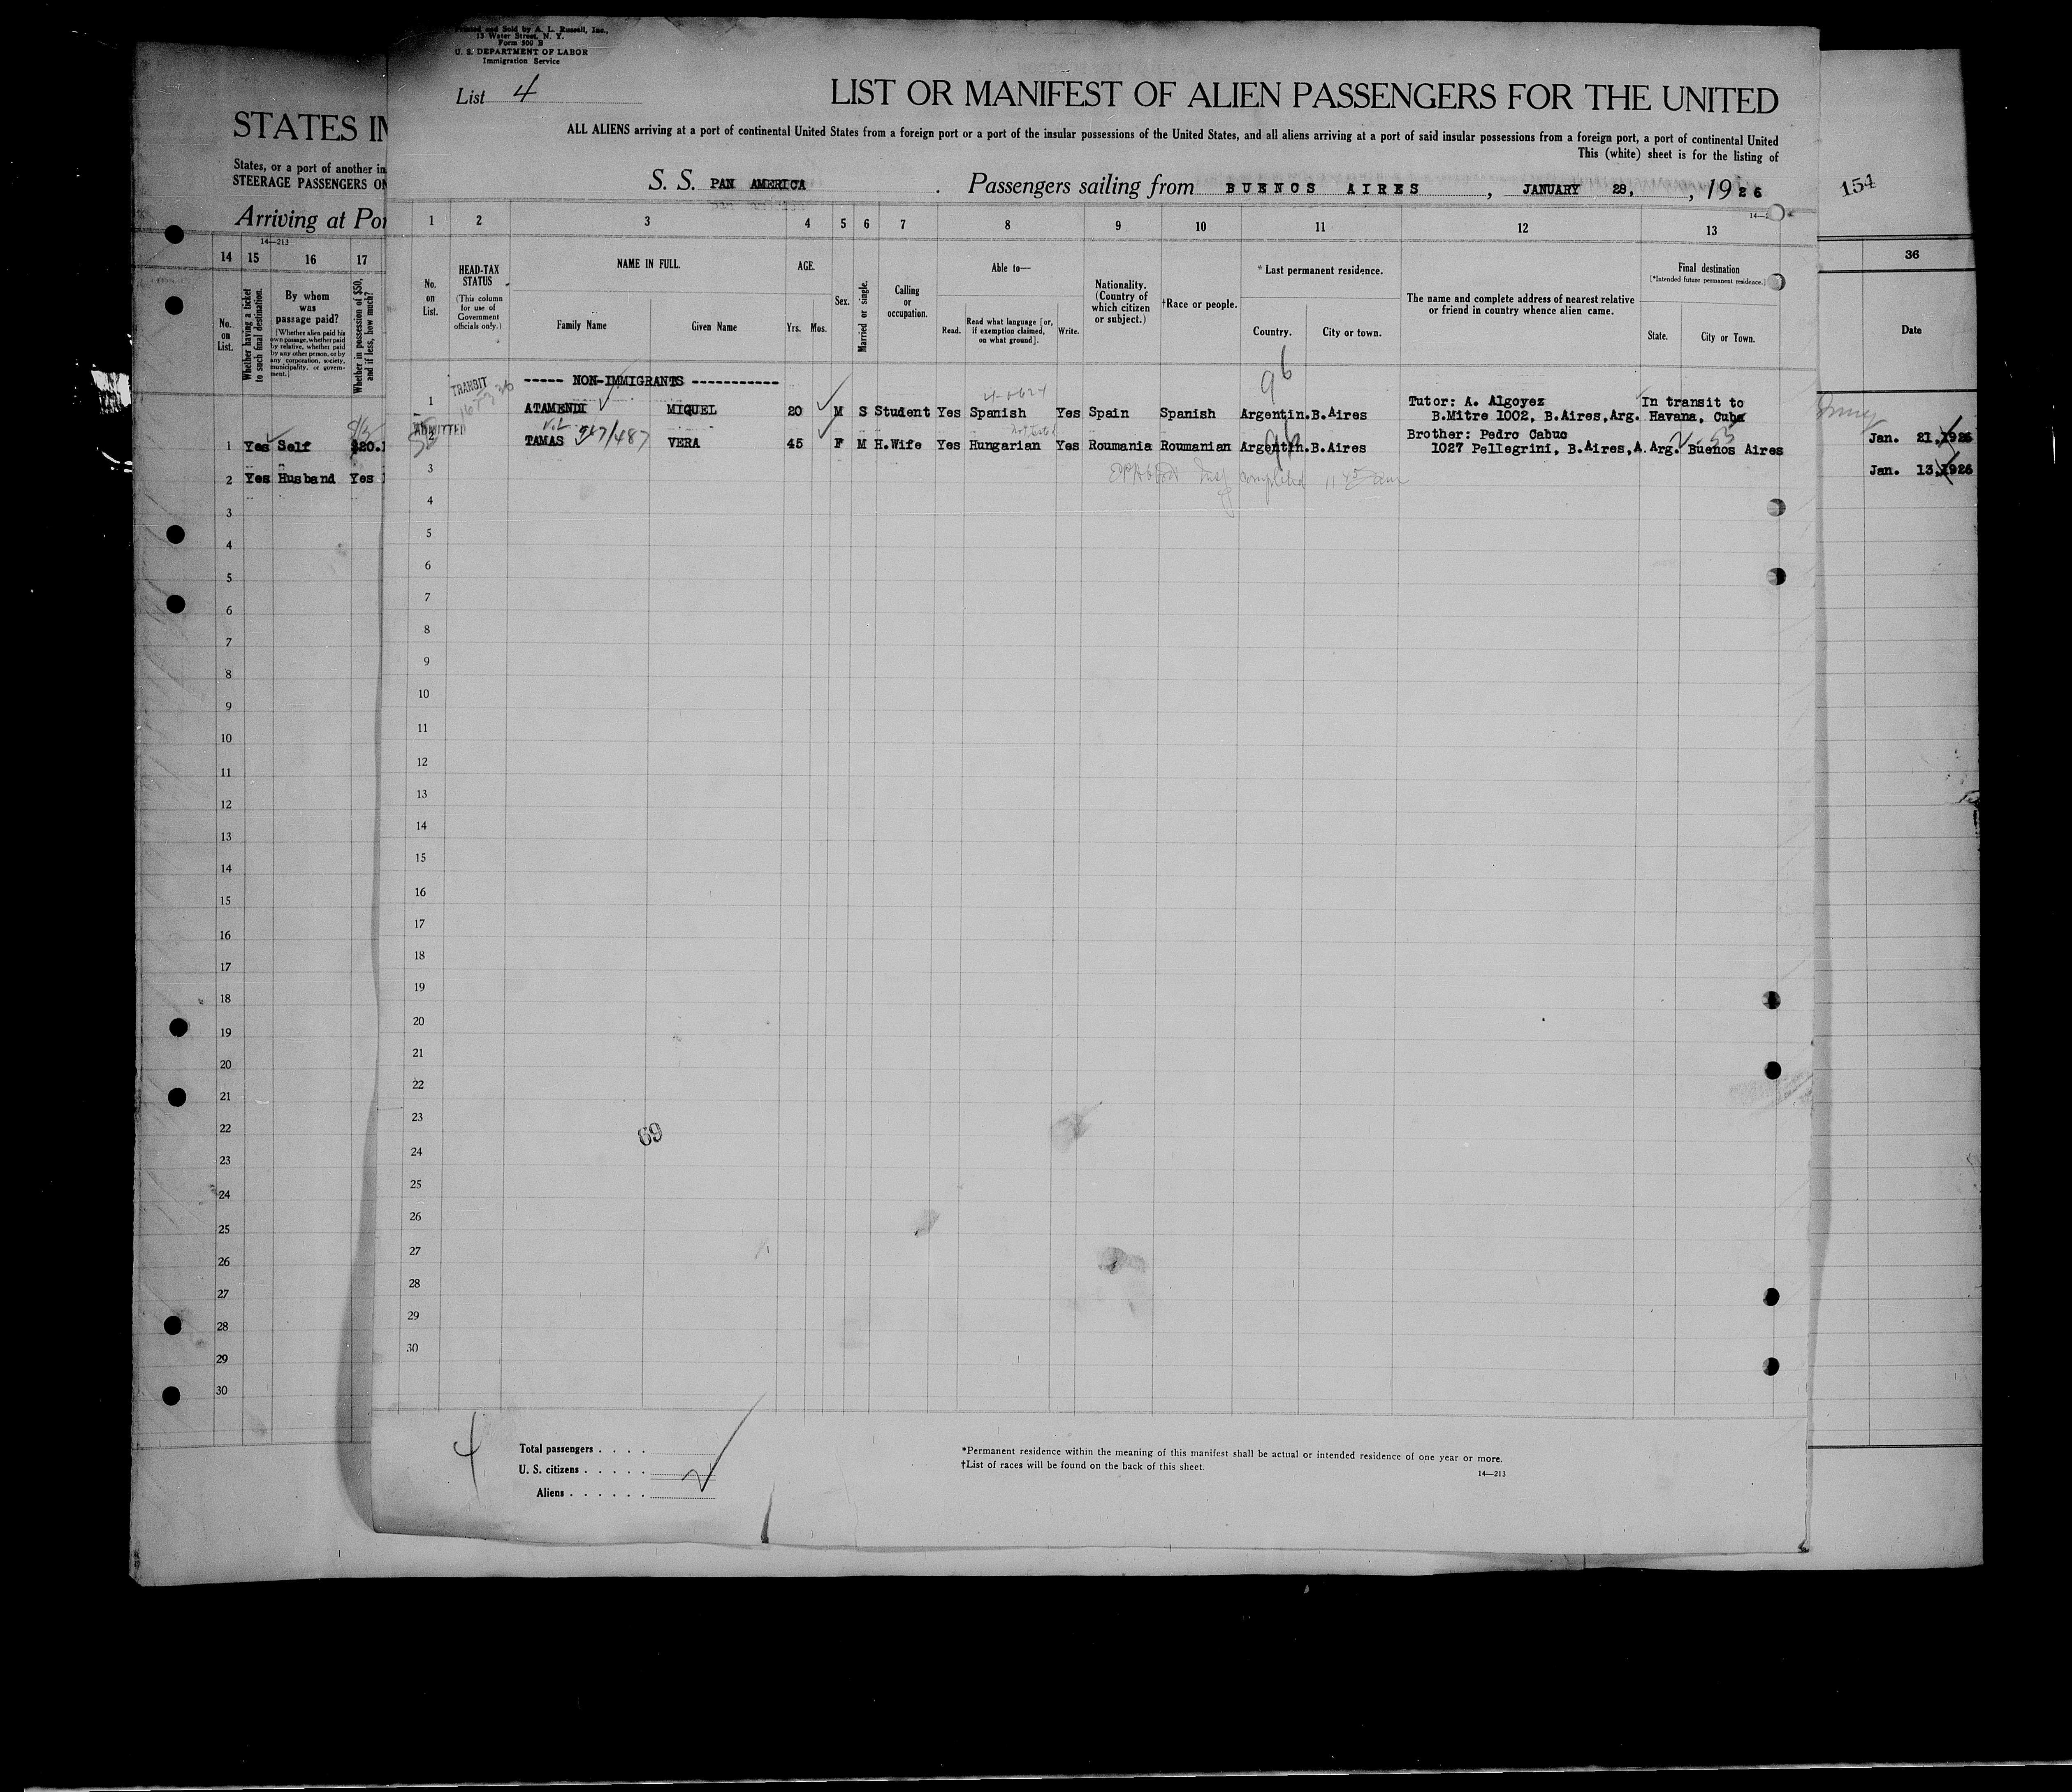 Printed and Sold by A. L. Russell, Inc.,
13 Water Street, N. Y.
Form 500 B
U. S. DEPARTMENT OF LABOR
Immigration Service
List 4
LIST OR MANIFEST OF ALIEN PASSENGERS FOR THE UNITED
ALL ALIENS arriving at a port of continental United States from a foreign port or a port of the insular possessions of the United States, and all aliens arriving at a port of said insular possessions from a foreign port, a port of continental United
This (white) sheet is for the listing of
S. S. PAN AMERICA . Passengers sailing from BUENOS AIRES , JANUARY 28, , 1926
STATES IN
States, or a port of another in
STEERAGE PASSENGERS ON
Arriving at Por
14—213
154
14 15 16 17
No. on List.
Whether having a ticket to such final destination.
By whom was passage paid?
[Whether alien paid his own passage, whether paid by relative, whether paid by any other person, or by any corporation, society, municipality, or government.]
Whether in possession of $50, and if less, how much?
1 Yes Self $20.
2 Yes Husband Yes
3
4
5
6
7
8
9
10
11
12
13
14
15
16
17
18
19
20
21
22
23
24
25
26
27
28
29
30
1 2 3 4 5 6 7 8 9 10 11 12 13
No. on List.
HEAD-TAX STATUS
(This column for use of Government officials only.)
NAME IN FULL.
Family Name Given Name
AGE.
Yrs. Mos.
Sex.
Married or single.
Calling or occupation.
Able to—
Read. Read what language [or, if exemption claimed, on what ground]. Write.
Nationality. (Country of which citizen or subject.)
†Race or people.
* Last permanent residence.
Country. City or town.
The name and complete address of nearest relative or friend in country whence alien came.
Final destination
[*Intended future permanent residence.]
State. City or Town.
----- NON-IMMIGRANTS -----------
TRANSIT
96
1 ATAMENDI MIQUEL 20 M S Student Yes Spanish Yes Spain Spanish Argentin.B.Aires Tutor: A. Algoyez In transit to
B.Mitre 1002, B.Aires,Arg. Havana, Cuba
ADMITTED
2 TAMAS VERA 45 F M H.Wife Yes Hungarian Yes Roumania Roumanian Argentin.B.Aires Brother: Pedro Cabuc
1027 Pellegrini, B.Aires,A. Arg. Buenos Aires
3
4
5
6
7
8
9
10
11
12
13
14
15
16
17
18
19
20
21
22
23
24
25
26
27
28
29
30
69
36
Date
Jan. 21,1926
Jan. 13,1926
4
Total passengers . . . .
U. S. citizens . . . . .
Aliens . . . . . .
*Permanent residence within the meaning of this manifest shall be actual or intended residence of one year or more.
†List of races will be found on the back of this sheet.
14—213